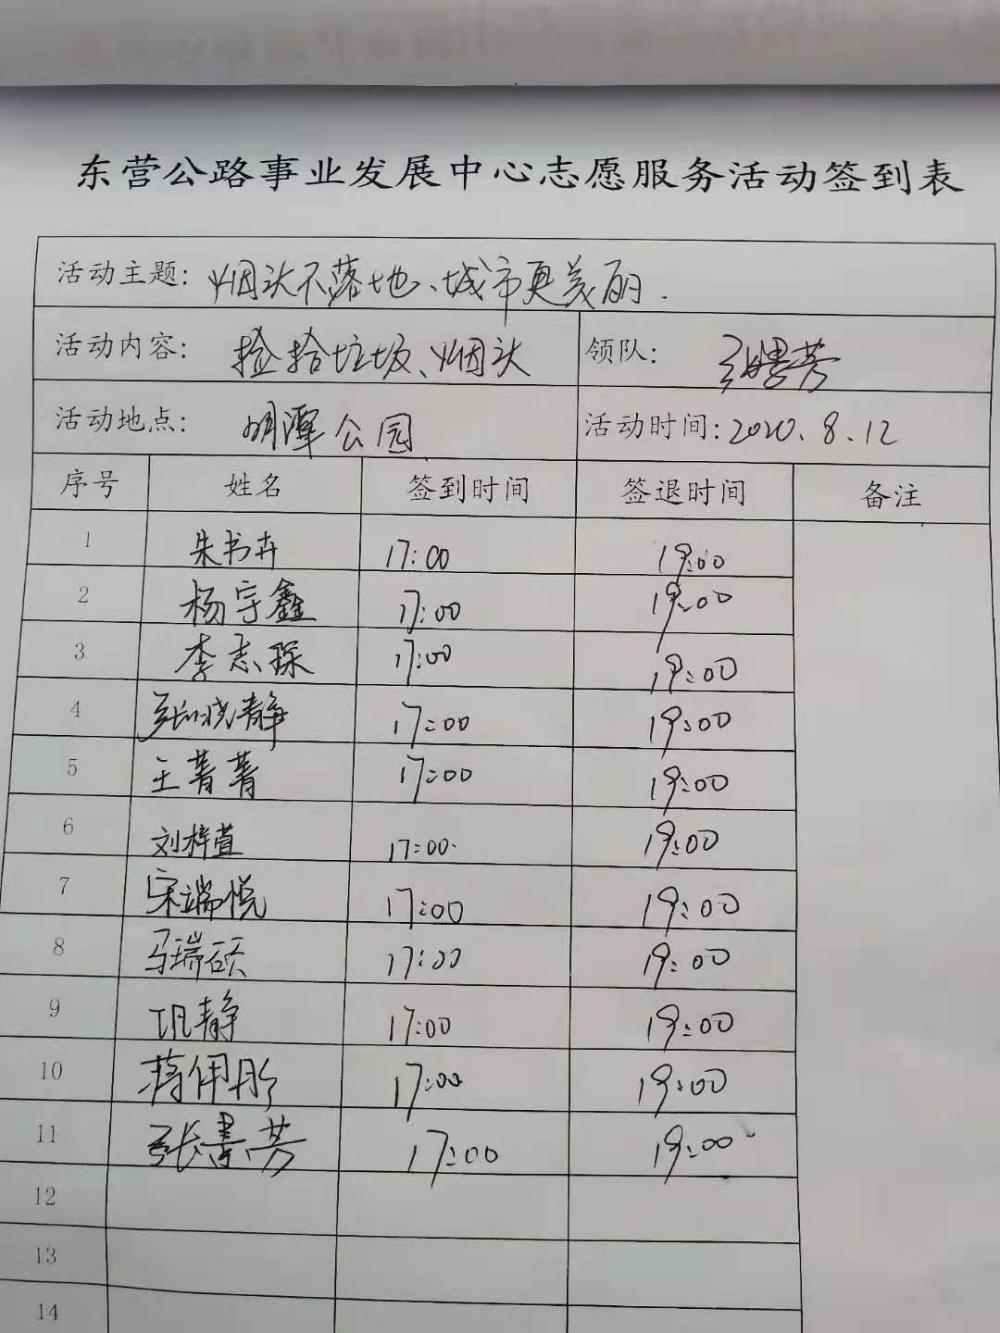 东营公路事业发展中心志愿服务活动签到表
活动主题: 烟头不落地、城市更美丽.
活动内容: 捡拾垃圾、烟头 领队:
活动地点: 明潭公园 活动时间: 2020.8.12
序号 姓名 签到时间 签退时间 备注
1 朱书卉 17:00 19:00
2 杨宇鑫 17:00 19:00
3 李志琛 17:00 19:00
4 张晓静 17:00 19:00
5 王菁菁 17:00 19:00
6 刘梓萱 17:00 19:00
7 宋端悦 17:00 19:00
8 马瑞硕 17:00 19:00
9 巩静 17:00 19:00
10 蒋佣彤 17:00 19:00
11 张書芳 17:00 19:00
12
13
14